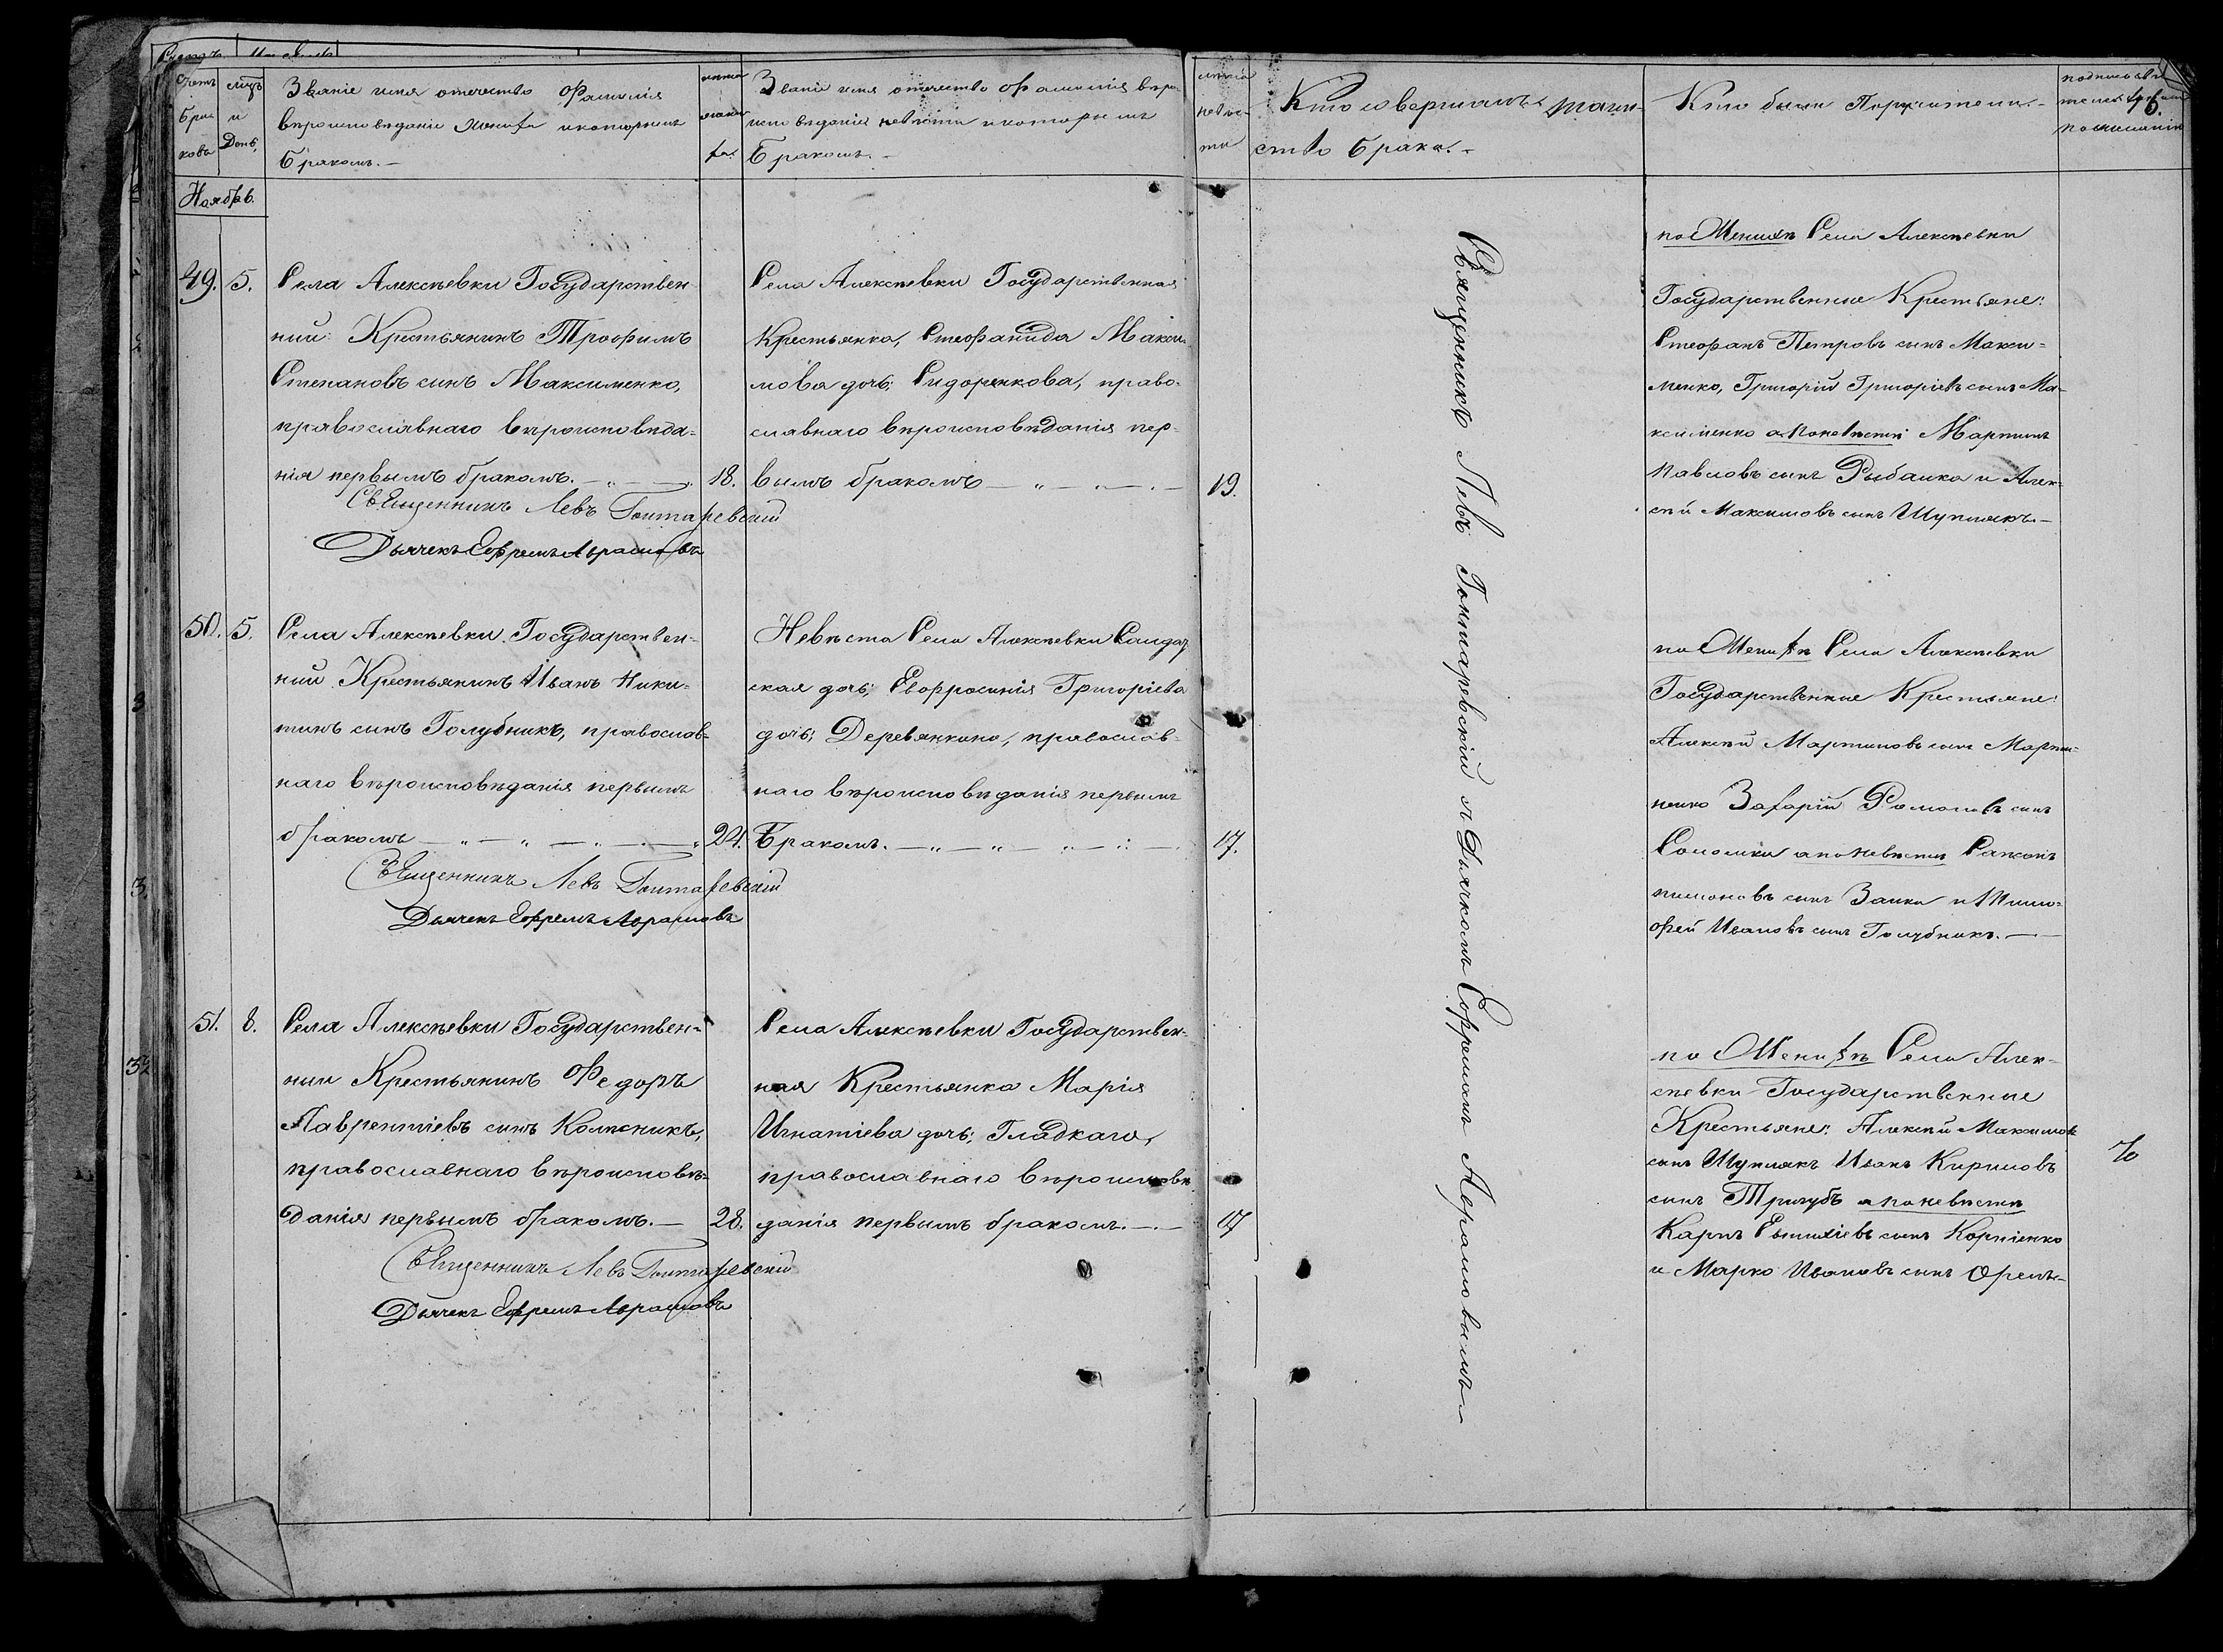 Счетъ браковъ
мцъ и День
Званіе имя отечество Фамилія
вѣроисповѣданіе жениха и которымъ
бракомъ.—
лѣта жениха
Званіе имя отечество фамилія вѣро-
исповѣданіе невѣсты и которымъ
Бракомъ.—
лѣта невѣсты
Кто совершалъ таин-
ство брака.—
Кто были Поручители.—
Ноябрь.
49. 5.
Села Алексѣевки Государствен-
ний Крестьянинъ Трофимъ
Степановъ синъ Максименко,
православнаго вѣроисповѣда=
нія первымъ бракомъ.— 18.
Священникъ Левъ Гонтаревскій
Дьячекъ Ефремъ Аврамовъ
Села Алексѣевки Государственная
Крестьянка, Стефанида Макси-
мова дочь; Сидоренкова, право-
славнаго вѣроисповѣданія пер-
вымъ бракомъ — 19.
по Жениху Села Алексѣевки
Государственные Крестьяне:
Стефанъ Петровъ сынъ Макси=
менко, Григорій Григорьевъ сынъ Ма-
ксименко а по невѣсти Мартинъ
Павловъ сынъ Рыбалка и Алек-
сѣй Максимовъ сынъ Шуплякъ.—
50. 5.
Села Алексѣевки Государствен-
ний Крестьянинъ Иванъ Ники=
тинъ синъ Голубникъ, православ-
наго вѣроисповѣданія первымъ
бракомъ — 24.
Священникъ Левъ Гонтаревскій
Дьячекъ Ефремъ Аврамовъ
Невѣста Села Алексѣевки Солдат-
ская дочь; Евфросинія Григоріева
дочь; Деревянкина, православ-
наго вѣроисповѣданія первымъ
Бракомъ.— 17.
по Женихѣ Села Алексѣевки
Государственные Крестьяне:
Алексѣй Мартиновъ сынъ Марти-
ненко Захарій Романовъ сынъ
а по невѣсти
сынъ Заика и Тимо-
фей Ивановъ сынъ Голубникъ.—
51. 8.
Села Алексѣевки Государствен=
ний Крестьянинъ Федоръ
Лаврентіевъ синъ Колесникъ,
православнаго вѣроисповѣ=
данія первымъ бракомъ.— 28.
Священникъ Левъ Гонтаревскій
Дьячекъ Ефремъ Аврамовъ
Села Алексѣевки Государствен-
ная Крестьянка Марія
Игнатіева дочь; Гладкаго,
православнаго вѣроисповѣ
данія первымъ бракомъ.— 17
по Женихѣ Села Алек-
сѣевки Государственные
Крестьяне: Алексѣй Максимовъ
сынъ Шуплякъ Иванъ Кириловъ
синъ Тригубъ а по невѣсти
Карпъ сынъ Корніенко
и Марко Ивановъ сынъ
Священникъ Левъ Гонтаревскій и Дьячкомъ Ефремомъ Аврамовымъ—